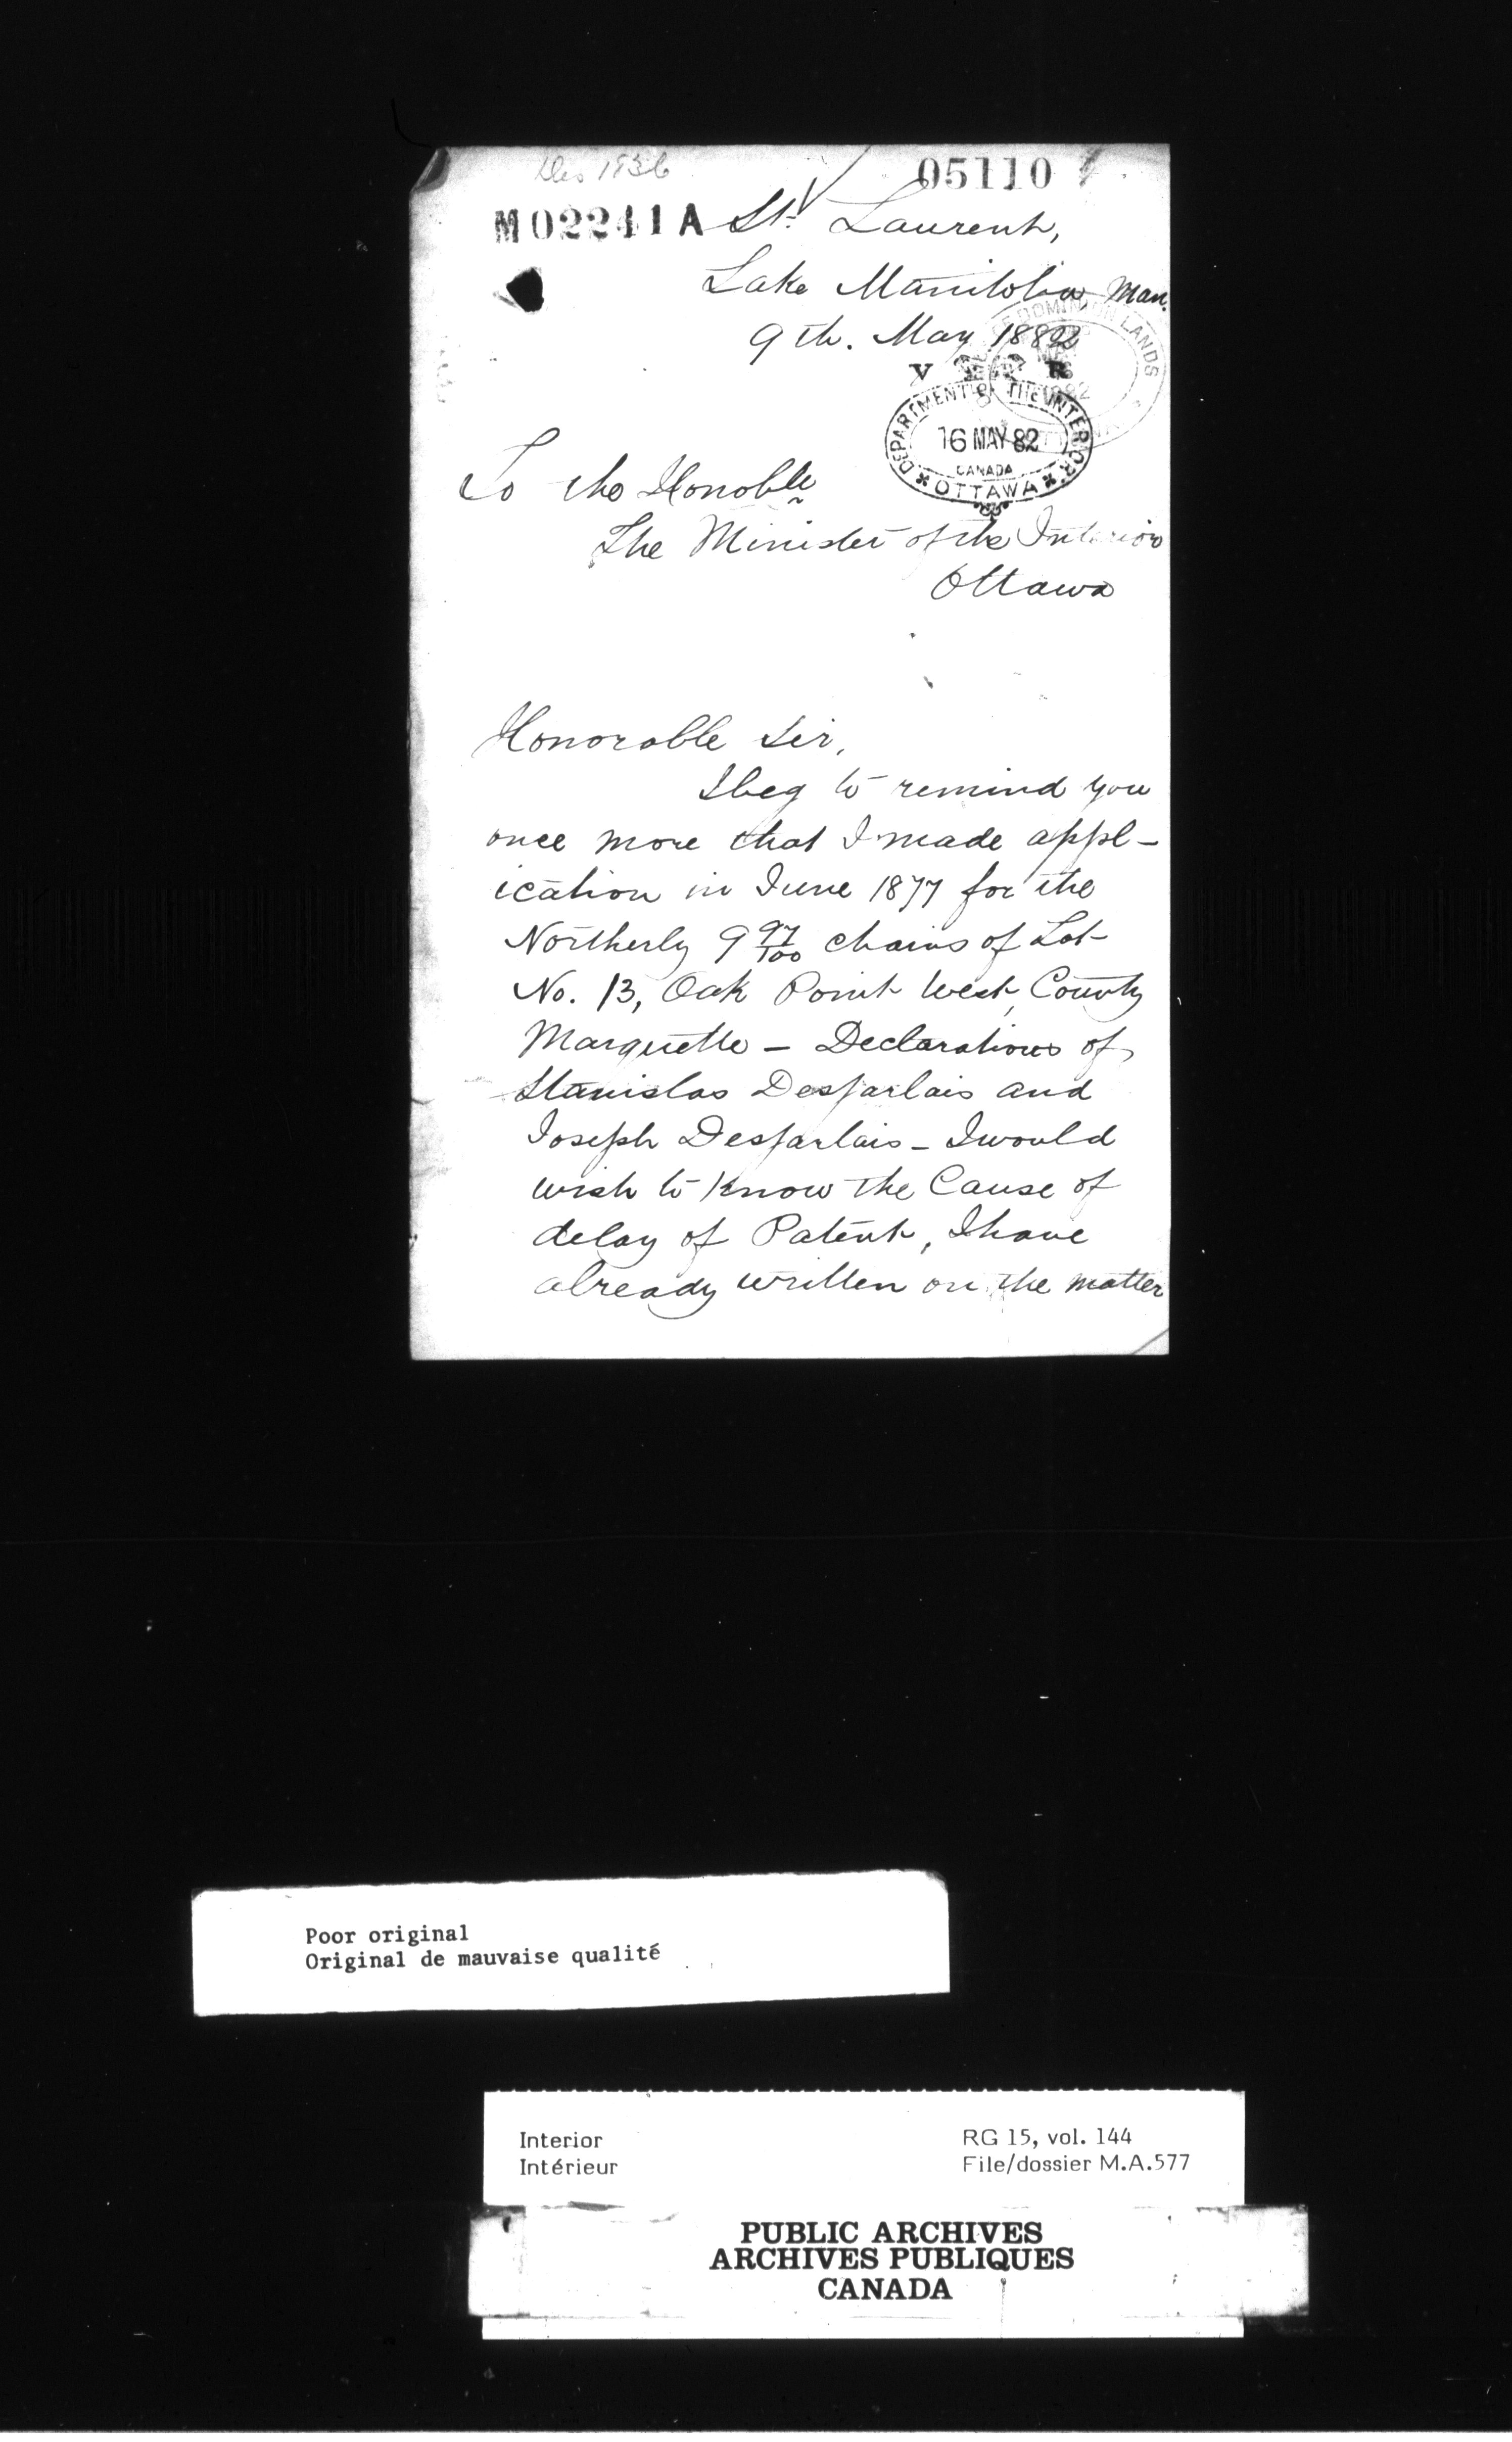 05110
M02241A St. Laurent,
Lake Manitoba, Man.
9th. May 1882
V R
DOMINION LANDS
DEPARTMENT OF THE INTERIOR
16 MAY 82
CANADA
OTTAWA
To the Honoble
The Minister of the Interior
Ottawa
Honorable Sir,
I beg to remind you
once more that I made appl-
ication in June 1877 for the
Northerly 9 97/100 chains of Lot
No. 13, Oak Point West, County
Marquette - Declarations of
Stanislas Desjarlais and
Joseph Desjarlais - I would
wish to know the Cause of
delay of Patent, I have
already written on the matter
Poor original
Original de mauvaise qualité
Interior
Intérieur
RG 15, vol. 144
File/dossier M.A.577
PUBLIC ARCHIVES
ARCHIVES PUBLIQUES
CANADA